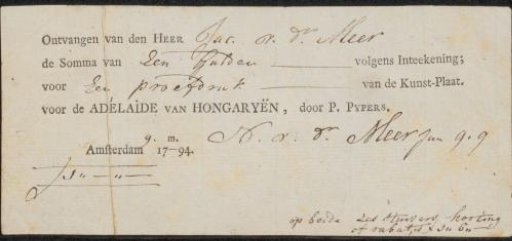 Ontvangen van den HEER Jac. v. dr. Meer
de Somma van Een Gulden volgens Inteekening;
voor Een proefdruk van de Kunst-Plaat.
voor de ADELAÏDE VAN HONGARYËN, door P. PYPERS.
9. m.
Amsterdam 17-94. N. v. dr. Meer Jun
op beide zes stuivers korting
of rabat,